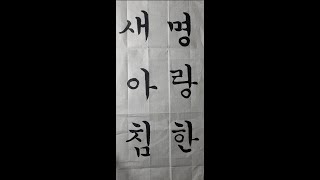 명랑한
새아침